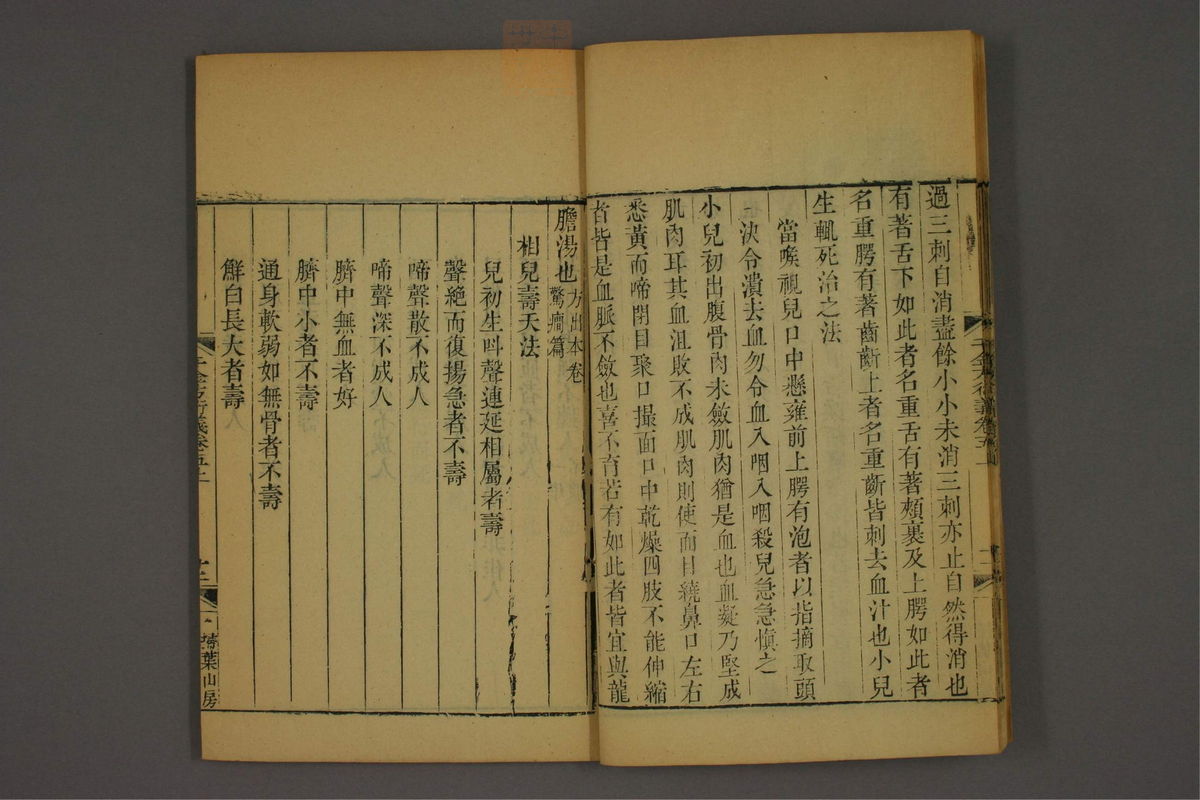 過三刺自消盡餘小小未消三刺亦止自然得消也
有著舌下如此者名重舌有著頰裏及上腭如此者
名重腭有著齒齗上者名重齗皆刺去血汁也小兒
生輒死治之法
當喉視兒口中懸雍前上腭有泡者以指摘取頭
決令潰去血勿令血入咽入咽殺兒急急愼之
小兒初出腹骨肉未斂肌肉猶是血也血凝乃堅成
肌肉耳其血沮敗不成肌肉則使面目繞鼻口左右
悉黃而啼閉目聚口撮面口中乾燥四肢不能伸縮
者皆是血脈不斂也喜不育若有如此者皆宜與龍
膽湯也方出本卷驚癎篇
相兒壽夭法
兒初生呌聲連延相屬者壽
聲絕而復揚急者不壽
啼聲散不成人
啼聲深不成人
臍中無血者好
臍中小者不壽
通身軟弱如無骨者不壽
鮮白長大者壽
千金方衍義卷五上
十二
掃葉山房